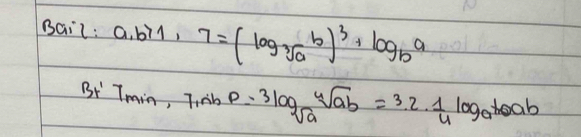 Bài 2: a,b>1, T=(log_{∛a} b)^3 + log_b a
Bt' Tmin, Tính P=3log_{√a} ∜ab = 3.2.1/4 log_a ab